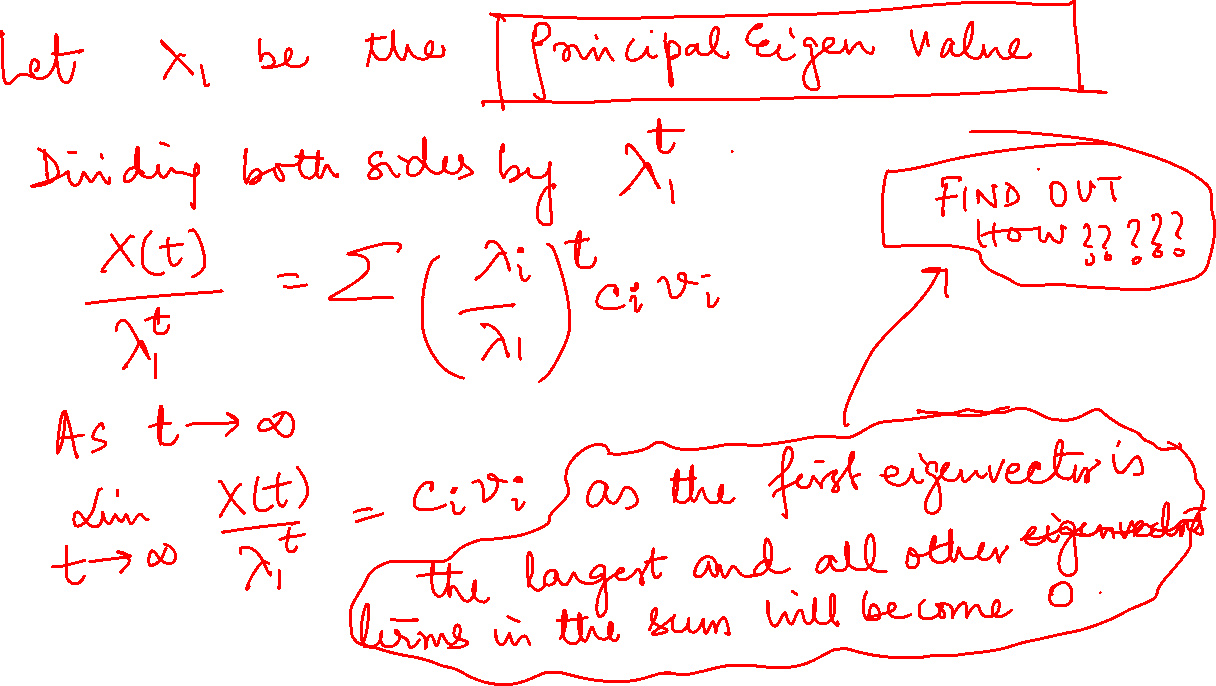 Let λ₁ be the Principal Eigen Value
Dividing both sides by λ₁ᵗ
X(t) / λ₁ᵗ = Σ (λᵢ / λ₁)ᵗ cᵢ vᵢ
FIND OUT
HOW ?? ???
As t → ∞
Lim t → ∞ X(t) / λ₁ᵗ = cᵢ vᵢ
as the first eigenvector is
the largest and all other eigenvectors
terms in the sum will become 0.